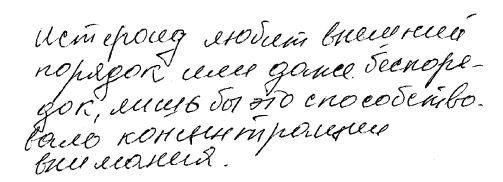 Истероид любит внешний
порядок или даже беспоря-
док, лишь бы это способство-
вало концентрации
внимания.